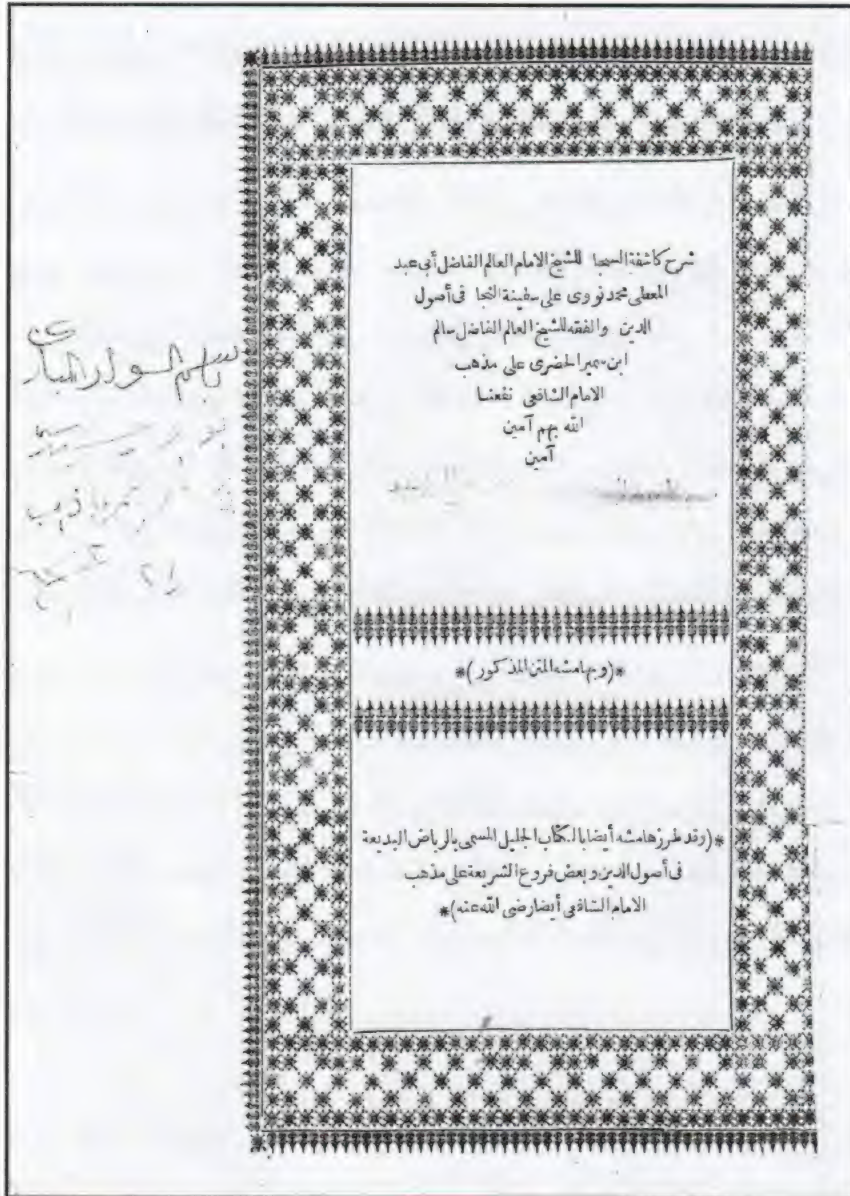 شرح كاشفة السجا للشيخ الامام العالم الفاضل أبى عبد
المعطى محمد نووى على سفينة النجا فى أصول
الدين والفقه للشيخ العالم الفاضل سالم
ابن سمير الحضرى على مذهب
الامام الشافعى نفعنا
الله بهم آمين
آمين
*(وبهامشه المتن المذكور)*
*(وقد طرز هامشه أيضا بالكتاب الجليل المسمى بالرياض البديعة
فى أصول الدين وبعض فروع الشريعة على مذهب
الامام الشافعى أيضا رضى الله عنه)*